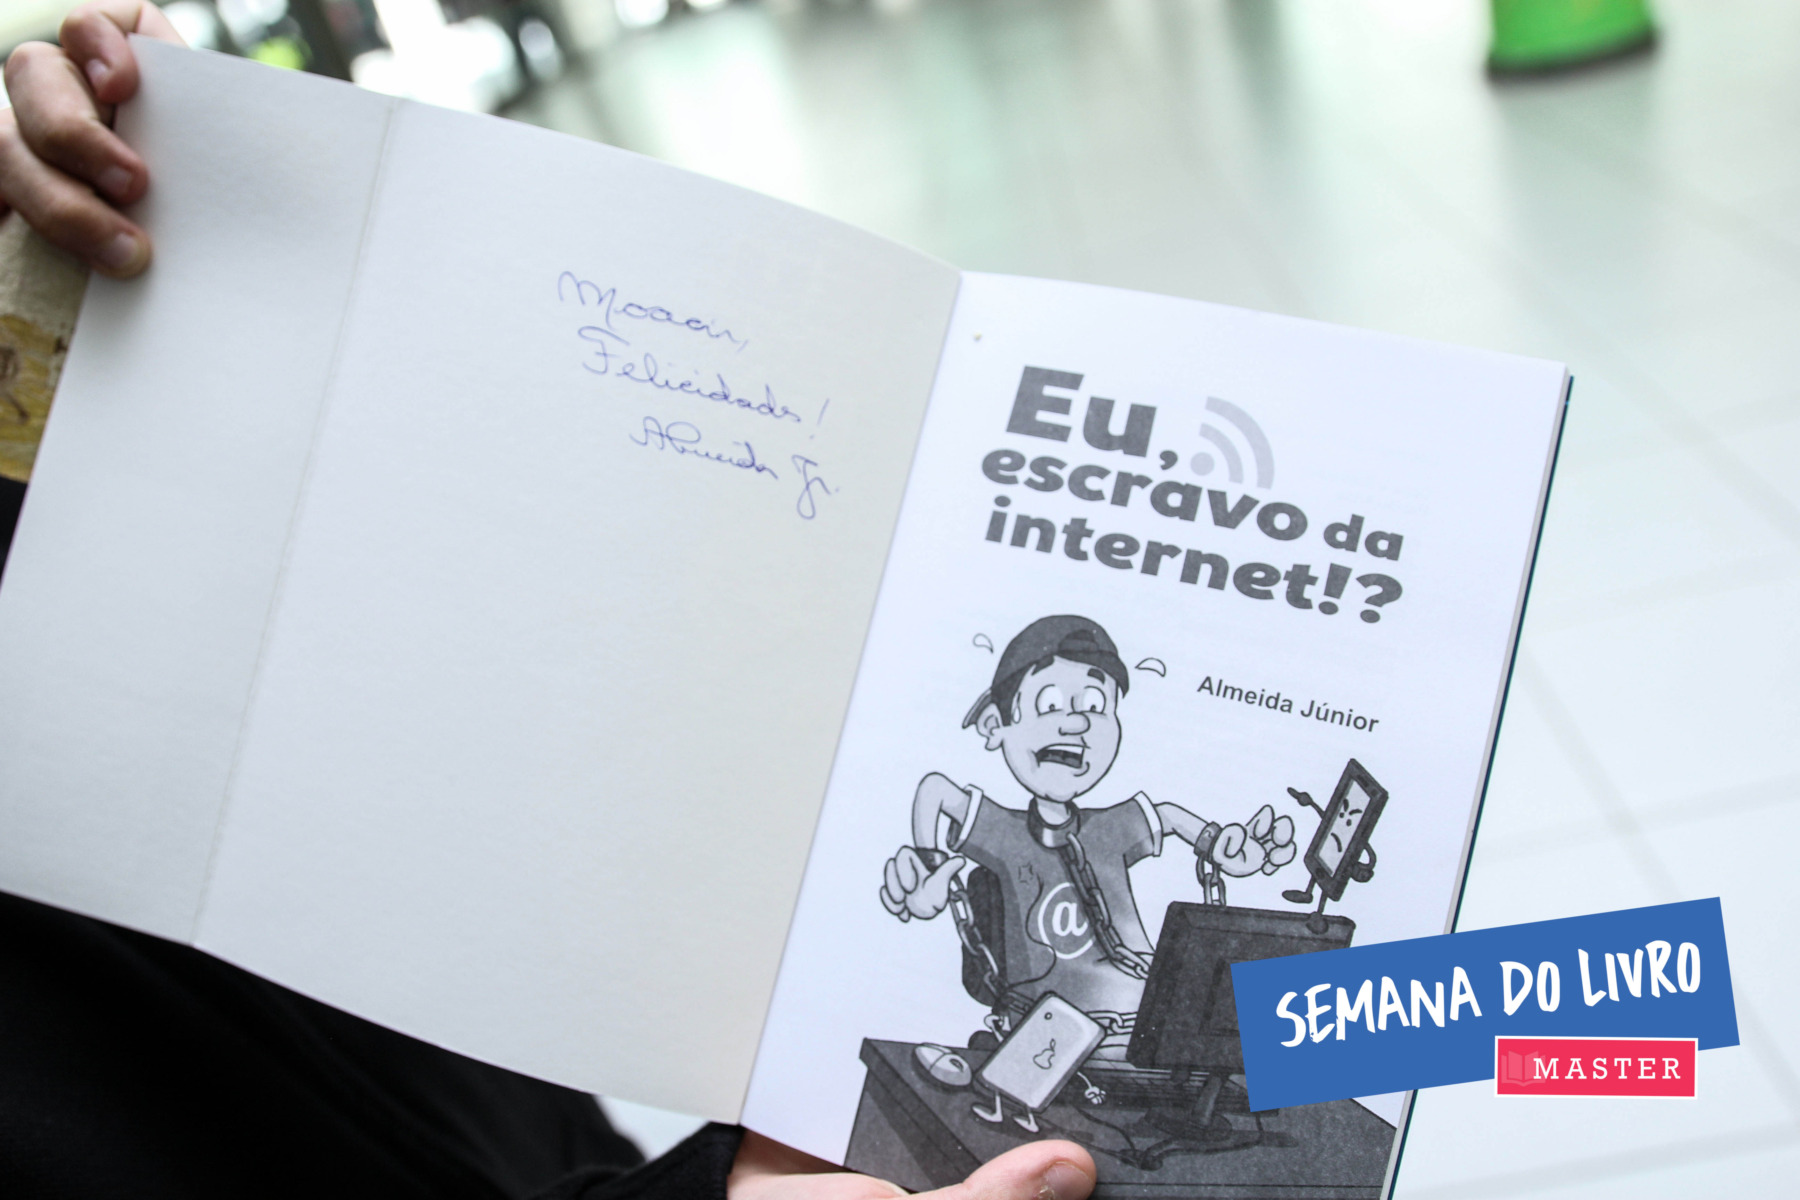 Moacir,
Felicidades!
Almeida Jr.
Eu,
escravo da
internet!?
Almeida Júnior
@
SEMANA DO LIVRO
MASTER